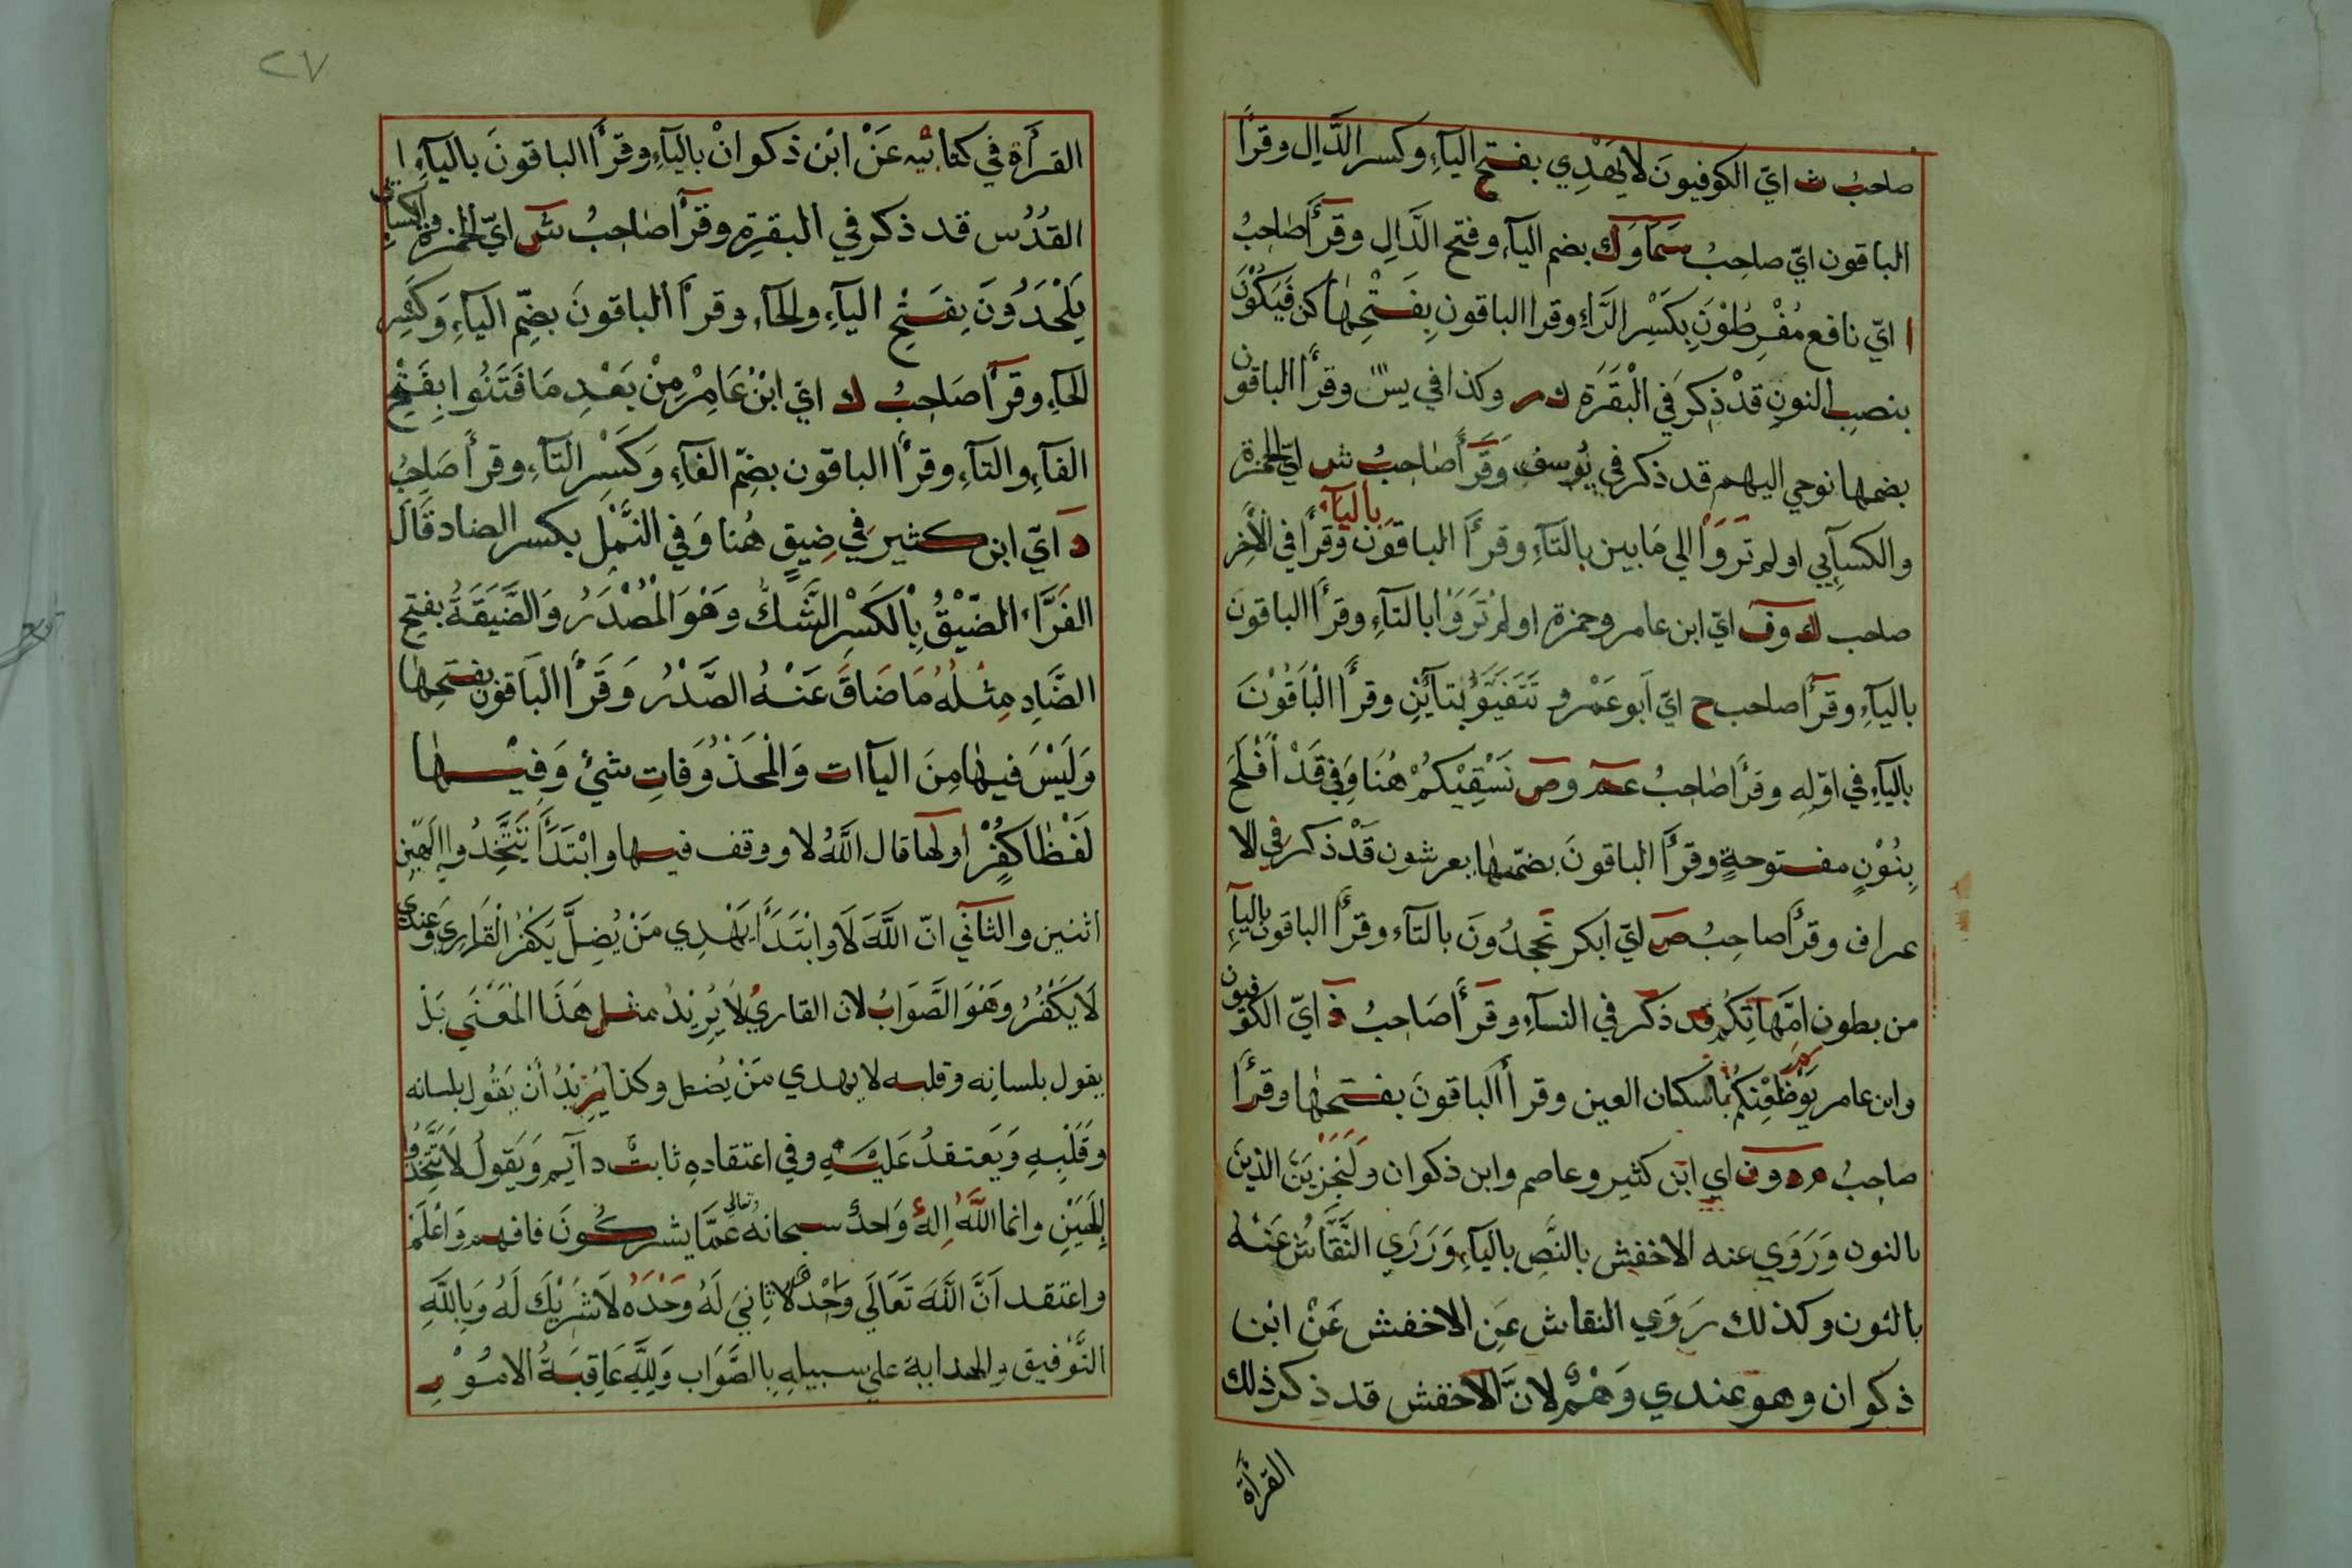 صاحبُ ث ايّ الكوفيونَ لا يَهْدِي بفتح اليآءِ وكسر الدَّالِ وقرأ
الباقون ايّ صاحِبُ سَمَاوَك بضم اليآءِ وفتح الدَّالِ وقرأ صاحبُ
ا ايّ نافع مُفْرِطُوْنَ بِكَسْرِ الرَّاءِ وقرا الباقون بِفَتْحِهٰا كن فَيَكُوْنَ
بنصبِ النونِ قَدْ ذِكرَ فَي الْبَقَرَة ك ر وكذا في يسۤ وقرأ الباقون
بضمها نوحي اليهم قد ذكر في يُوسفِ وَقَرَأ صٰاحبُ ش ايّ الحمزة
والكسآيي اولم تَرَوَاْ الي مَا بين بالتَآءِ وقرأ الباقوَن بِاليآءِ وقرأ في الْاٰخر
صاحب ك وف ايّ ابن عامر وحمزة اولم تَرَوَاْ بالتآءِ وقرأ الباقون
باليآءِ وقرأ صاحب ح ايّ اَبو عَمْرو تَتَفَيَّوُ بتآئَيْنِ وقرأ الْبَاقُوْنَ
باليآءِ في اوّلِهِ وقرأ صٰاحِبُ عم وص نَسْقِيْكُمْ هُنَا وَفي قَدْ اَفْلَحَ
بِنُوْنٍ مفتوحةٍ وقرأ الباقونَ بضمّهٰا يعرشون قَدْ ذكر في الا
عراف وقرأ صاحِبُ ص ايّ ابكر تَجحدُونَ بالتآء وقرأ الباقون باليآءِ
من بطون امَّهاتِكم قد ذكر في النسآءِ وقرأ صَاحبُ ذ ايّ الكوفيون
وابن عامر يَوْمَ ظَعْنِكُمْ باسكان العين وقرأ الباقونَ بفتحهٰا وقرأ
صاحِبُ م د ون اي ابن كثير وعاصم وابن ذكوان وَلَنَجْزِيَنَّ الذينَ
بالنون وَرَوَي عنه الاخفش بالنَّصِ باليآءِ وَرَرَي النَّقَّاش عَنْهُ
بالنون وكذلك رَوَي النقاش عَنِ الاخفش عَنْ ابن
ذكوان وهو عندي وَهْمٌ لانَّ الآخفش قد ذكر ذلك
القرأة
٢٧
القرأة في كتابيْهِ عَنْ ابْن ذكوانْ باليآءِ وقرأ الباقونَ باليآءِ ا
القدُس قد ذكر في البقرةِ وقرأ صٰاحِبُ ش ايّ الحمزة والكسائي
يَلْحَدُونَ بِفَتْحِ اليآءِ والحآءِ وقرأ الباقونَ بضِّم اليآءِ وَكَسْرِ
الحآءِ وقرأ صَاحِبُ ك ايّ ابْنُ عَامِرْ مِنْ بَعْدِ مَا فَتَنُوا بِفَتْحِ
الفآءِ والتآءِ وقرأ الباقون بضِّم الفآءِ وَكَسْرِ التآءِ وقرأ صَاحِبُ
د ايّ ابن كثير في ضِيقٍ هُنا وَفي النَّمْلِ بكسر الضاد قَالَ
الفَرَّاءُ الضّيْقُ بِاْلكَسْرِ الشَّكُّ وهَوَ الْمُصْدَرُ وَالضَّيَقَةُ بفتح
الضَّادِ مِثْلُهُ مَا ضَاقَ عَنْهُ الصَّدْرُ وَقَرأ الْبَاقون بفتحِهٰا
وَلَيْسَ فيهٰا مِنَ اليآاتِ وَالْمَحَذْوَفَاتِ شيْ وَفِيْهٰا
لَفْظَا كُفْرٍ اولهَا قال اللَّهُ لا ووقف فيها وابْتَدَأَ تَتَّخِذُوا اِلَهَيْنِ
اثنين والثاني انّ اللَّهَ لَا وابْتَدَأَ يَهْدِي مَنْ يُضِلَّ يَكْفرُ الْقَارِيَ وعندي
لَا يَكْفُرُ وهَوَ الصَّوَابُ لان القاريُ لاَ يُرِيْدُ مثل هَذَا الْمَعْنَي بَلْ
يقول بلسانِه وقلبه لا يهدي مَنْ يُضل وكذا يُرِيْدُ أَنْ يَقُول بلسانه
وقَلْبِهِ وَيَعتقدُ عَليْهِ وفي اعتقادِهِ ثابتٌ دآيم وَيَقولُ لَا تَتَّخِذُوا
اِلَهَيْنِ وانما اللَّهُ اِلهُ وَاحدٌ سبحانهُ وتعالي عَمَّا يشركُونَ فافهم وَاعْلَمْ
واعتقد اَنَّ اللَّهَ تَعَالَي وَاحْدٌ لَا ثانِيَ لَهُ وَحْدَهُ لَا شَرِيْكَ لَهُ وَبِاللَّهِ
التَّوفيق والهداية علي سبيلِهِ بالصَّوَاب وَلِلَّهِ عَاقِبَةُ الامُوْرِ